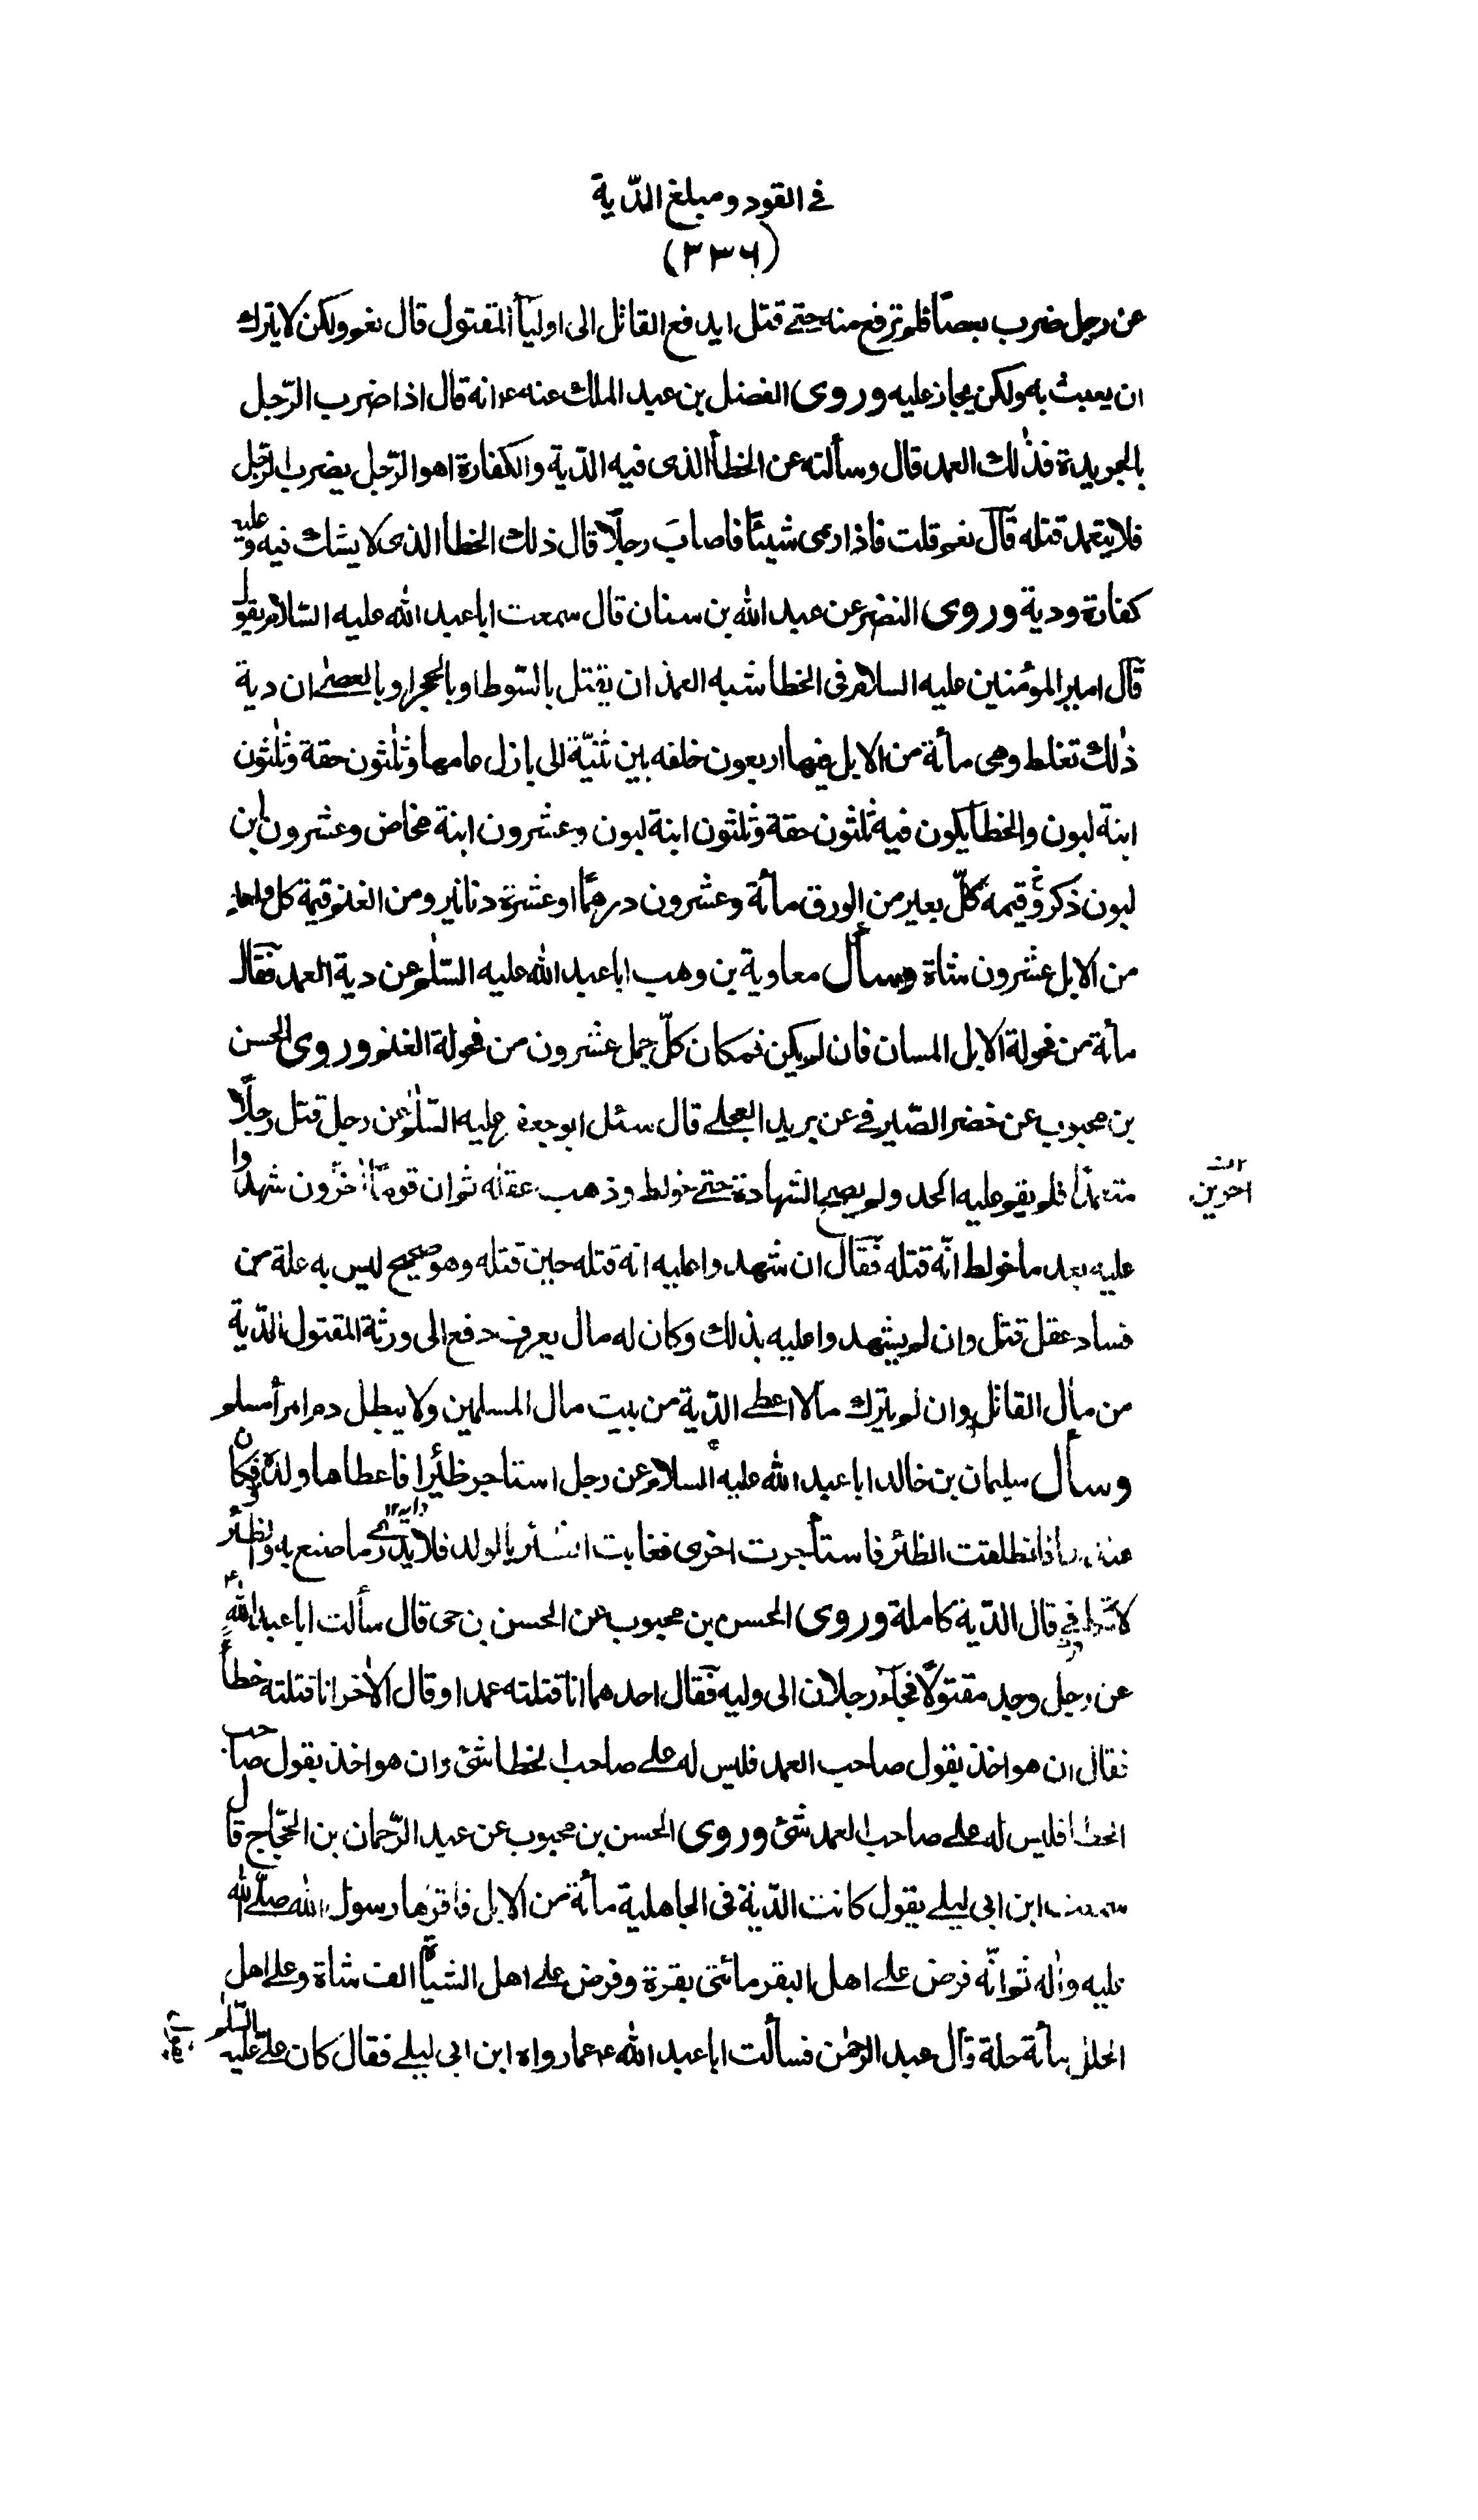 في القود ومبلغ الدّية
(٣٣٦)
عن رجل ضرب بعصًا فلم ترفع منه حتى قتل ايدفع القاتل الى اوليآء المقتول قال نعم ولكن لا يترك
ان يعبث به ولكن يجاز عليه وروى الفضل بن عبد الملك عنه ع انه قال اذا ضرب الرّجل
بالحديدة فذٰلك العمد قال وسألته عن الخطأ الذى فيه الدّية والكفارة اهو الرّجل يضرب الرّجل
فلا يتعمد قتله قآل نعم قلت فاذا رمى شيئًا فاصابَ رجلًا قال ذلك الخطا الذى لا يشك فيه وعليه
كفارة ودية وروى النضر عن عبد الله بن سنان قال سمعت ابا عبد الله عليه السّلام يقول
قآل امير المؤمنين عليه السلام فى الخطا شبه العمد ان يقتل بالسّوط او بالحجر او بالعصى ان دية
ذٰلك تغلظ وهى مأة من الابل فيها اربعون خلفه بين ثنيّة الى بازل عامها وثلٰثون حقة وثلٰثون
ابنة لبون والخطأ يكون فيه ثلٰثون حقة وثلٰثون ابنة لبون وعشرون ابنة مخاض وعشرون ابن
لبون ذكر وقيمة كلّ بعير من الورق مأة وعشرون درهمًا او عشرة دنانير ومن الغنم قيمة كل واحد
من الابل عشرون شاة وسأل معاوية بن وهب ابا عبد الله عليه السّلٰم عن دية العمد فقال
مأة من فحولة الابل المسان فان لم يكن فمكان كلّ جمل عشرون من فحولة الغنم وروى الحسن
بن محبوب عن خضر الصّيرفى عن بريد العجلى قال سئل ابو جعفر عليه السّلٰم عن رجل قتل رجلًا
متعمدًا فلم يقم عليه الحد ولم يصح الشهادة حتى خولط وذهب عقله ثم ان قومًا اٰخرون شهدوا
اخرين
عليه بعد ما خولط انّه قتله فقال ان شهدوا عليه انه قتله حين قتله وهو صحيح ليس به علة من
فساد عقل قتل وان لم يشهدوا عليه بذلك وكان له مال يعرف دفع الى ورثة المقتول الدّية
من مال القاتل وان لم يترك مآلا اعطى الدّية من بيت مال المسلمين ولا يبطل دم امرأ مسلم
وسأل سليمان بن خالد ابا عبد الله عليه السلام عن رجل استاجر ظئرا فاعطاها ولده فكان
عندها فانطلقت الظئر فاستأجرت اخرى فغابت الظئر بالولد فلا يدرى ما صنع به والظئر
قال الدّية كاملة وروى الحسن بن محبوب عن الحسن بن حى قال سألت ابا عبد الله ع
عن رجل وجد مقتولًا فجآء رجلان الى وليه فقال احدهما انا قتلته عمدا وقال الاٰخر انا قتلته خطأً
فقال ان هو اخذ يقول صاحب العمد فليس له على صاحب الخطا شئ وان هو اخذ يقول صاحب
الخطا فليس له على صاحب العمد شئ وروى الحسن بن محبوب عن عبد الرّحمان بن الحجّاج قال
سمعت ابن ابى ليلى يقول كانت الدّية فى الجاهلية مأة من الابل فاقرّها رسول الله صلّى الله
عليه واٰله ثم انّه فرض على اهل البقر مائتى بقرة وفرض على اهل الشياه الف شاة وعلى اهل
الحلل مأة حلة قال عبد الرحمٰن فسألت ابا عبد الله ع عما رواه ابن ابى ليلى فقال كان على عليه السّلٰم